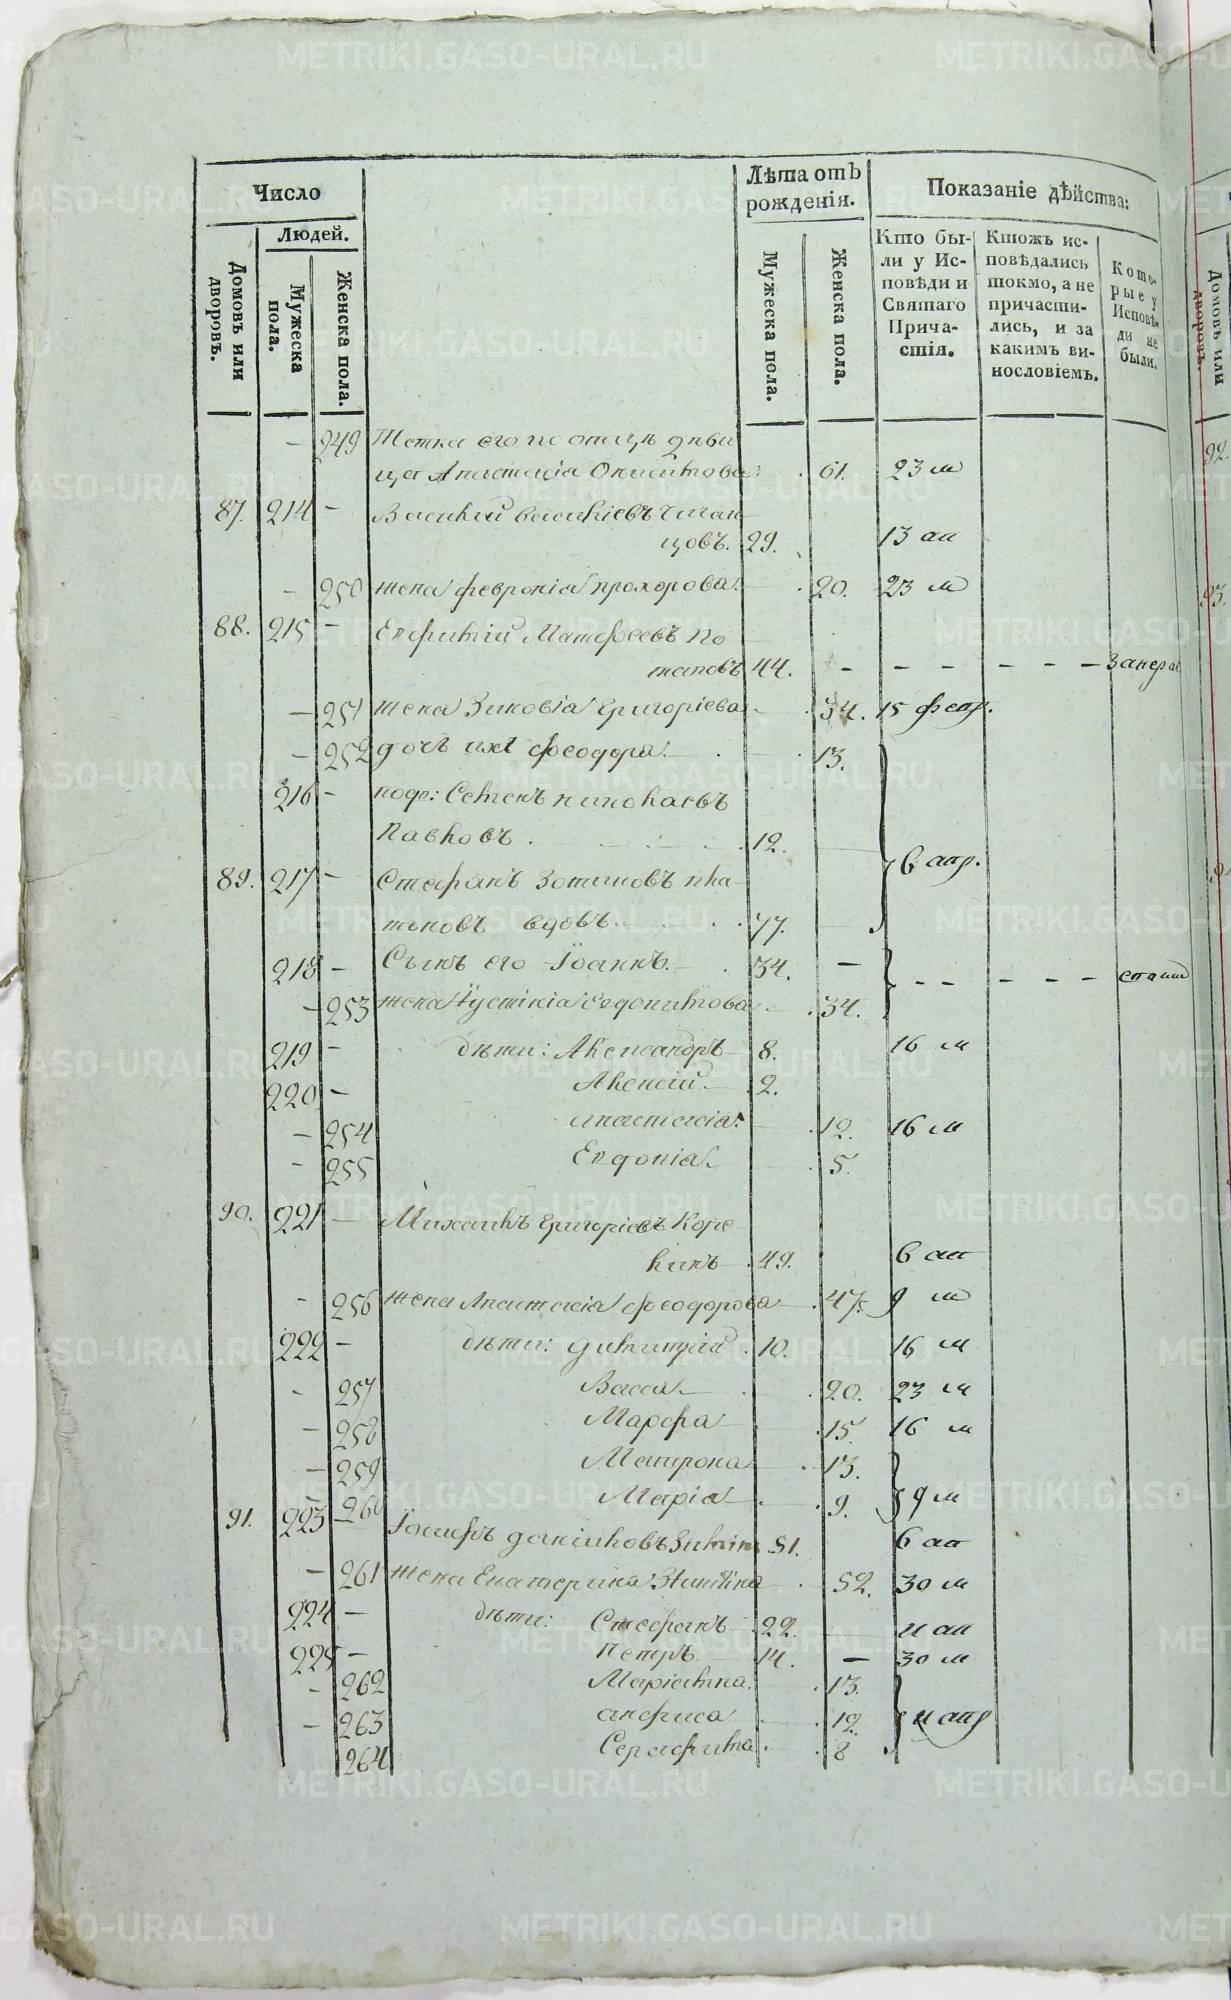 Число
Людей.
Домовъ или дворовъ.
Мужеска пола.
Женска пола.
Лѣта отъ рожденія.
Мужеска пола.
Женска пола.
Показаніе дѣйства:
Кто были у Исповѣди и Святаго Причастія.
Ктожъ исповѣдались токмо, а не причастились, и за какимъ винословіемъ.
Которые у Исповѣди не были.
- 249 Тетка его по отцѣ дѣви
ца Анастасія 61. 23 м
87. 214 - Василій Васильевъ
цовъ. 29. 13 ап
- 250 жена Февронія Прохорова 20. 23 м
88. 215 - Евфимій Матфеевъ По
таповъ 44. - - - - - -
- 251 жена Зиновія Григоріева 34. 15 февр.
- 252 дочь ихъ Феодора 13.
216 -
Павловъ 12. 6 апр.
89. 217 - Стефанъ Зотиковъ Пла
тоновъ вдовъ 77.
218 - Сынъ его Іоаннъ 34. - - - - - -
- 253 жена Іустинія 34.
219 - дѣти: Александръ 8. 16 м
220 - Алексій 2.
- 254 Анастасія 12. 16 м
- 255 Евдокія 5.
90. 221 - Михаилъ Григоріевъ Коре
кинъ 49. 6 ап
- 256 жена Анастасія Феодорова 47. 9 м
222 - дѣти: Димитрій 10. 16 м
- 257 Васса 20. 23 м
- 258 Марфа 15. 16 м
- 259 Матрона 13.
- 260 Марія 9. 9 м
91. 223 - Даніиловъ 51. 6 ап
- 261 жена Екатерина 52. 30 м
224 - дѣти: Стефанъ 22. 11 ап
225 - Петръ 14. - 30 м
- 262 Маріамна 13.
- 263 Анфиса 12. 11 апр
264 Серафима 8
Домовъ или дворовъ.
92.
93.
METRIKI.GASO-URAL.RU